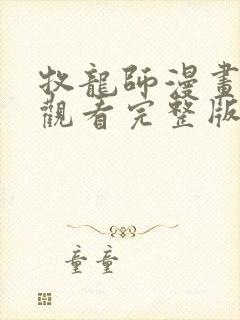 牧龍師漫畫
觀看完整版
童童